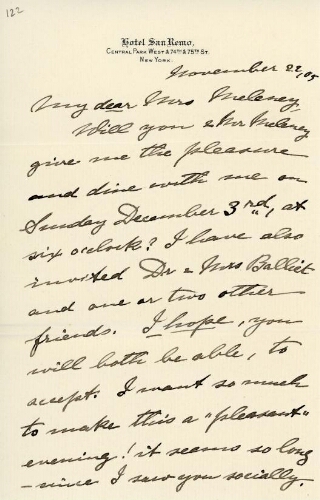 122
Hotel San Remo,
Central Park West & 74th & 75th St.
New York.
November 22, 05
My dear Mrs Meleney,
Will you & Mr Meleney
give me the pleasure
and dine with me on
Sunday December 3rd, at
six o'clock? I have also
invited Dr & Mrs Balliet
and one or two other
friends. I hope, you
will both be able, to
accept. I want so much
to make this a "pleasant"
evening! it seems so long
- since I saw you socially.